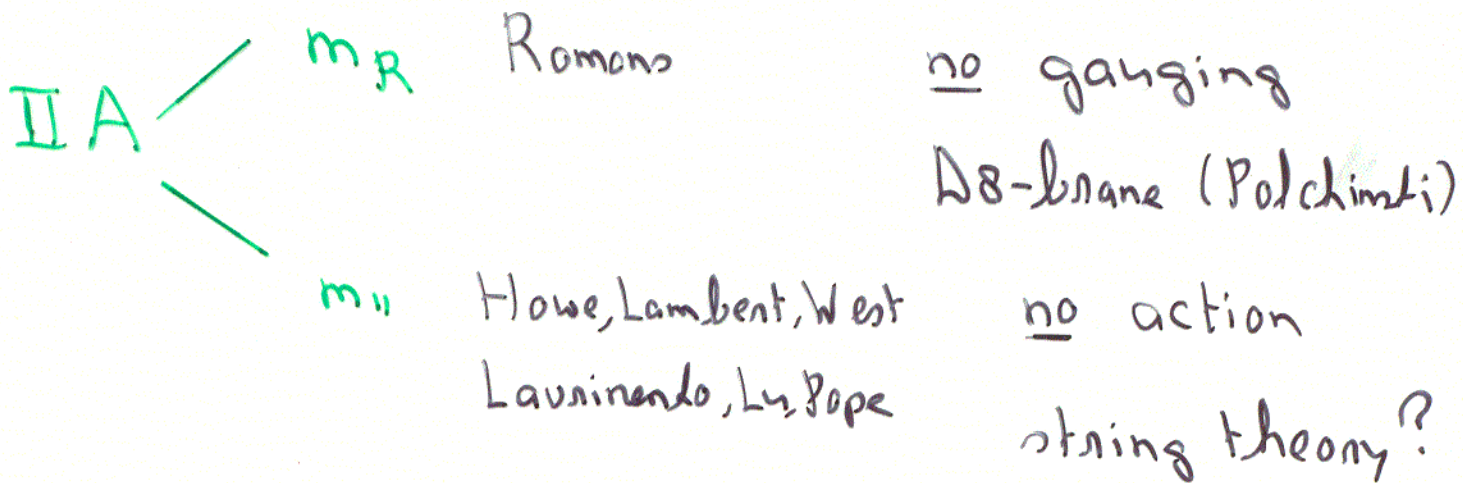 IIA
m_R Romans no gauging
D8-brane (Polchinski)
m_11 Howe, Lambert, West no action
Lavrinenko, Lu, Pope
string theory?